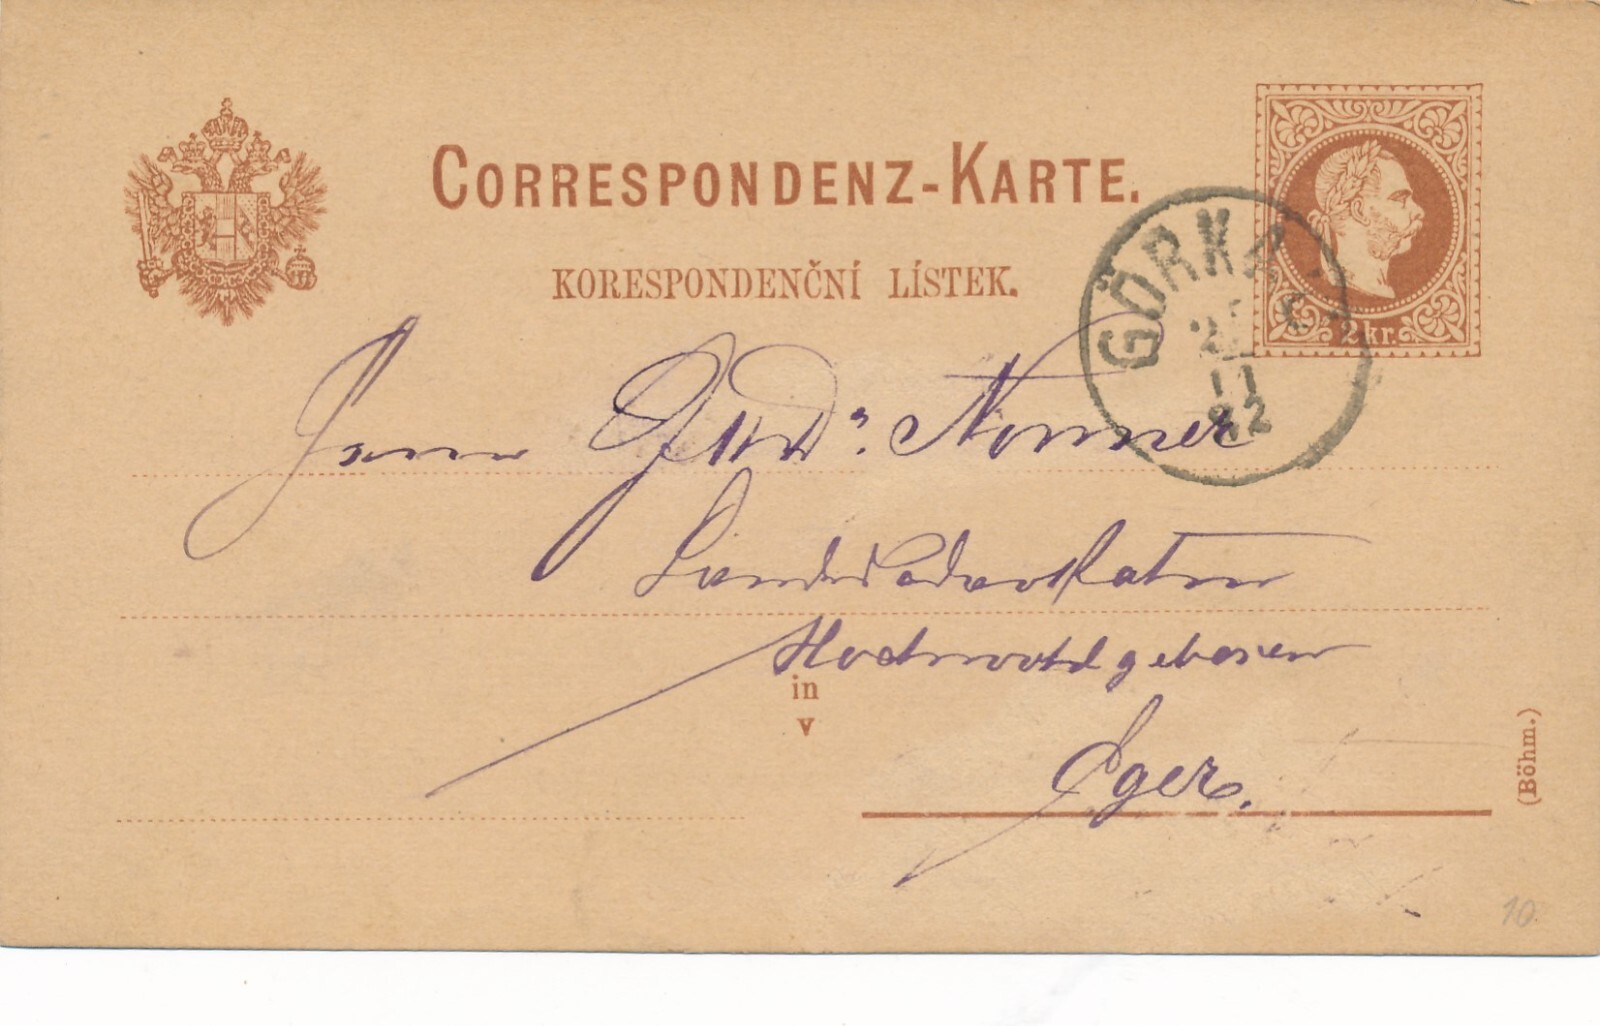 CORRESPONDENZ-KARTE.
KORESPONDENČNÍ LÍSTEK.
2 kr.
GÖRKA
11
82
Herrn JUDr. Nonner
Landesadvokaten
Hochwohlgeboren
in
v
Eger.
(Böhm.)
10.